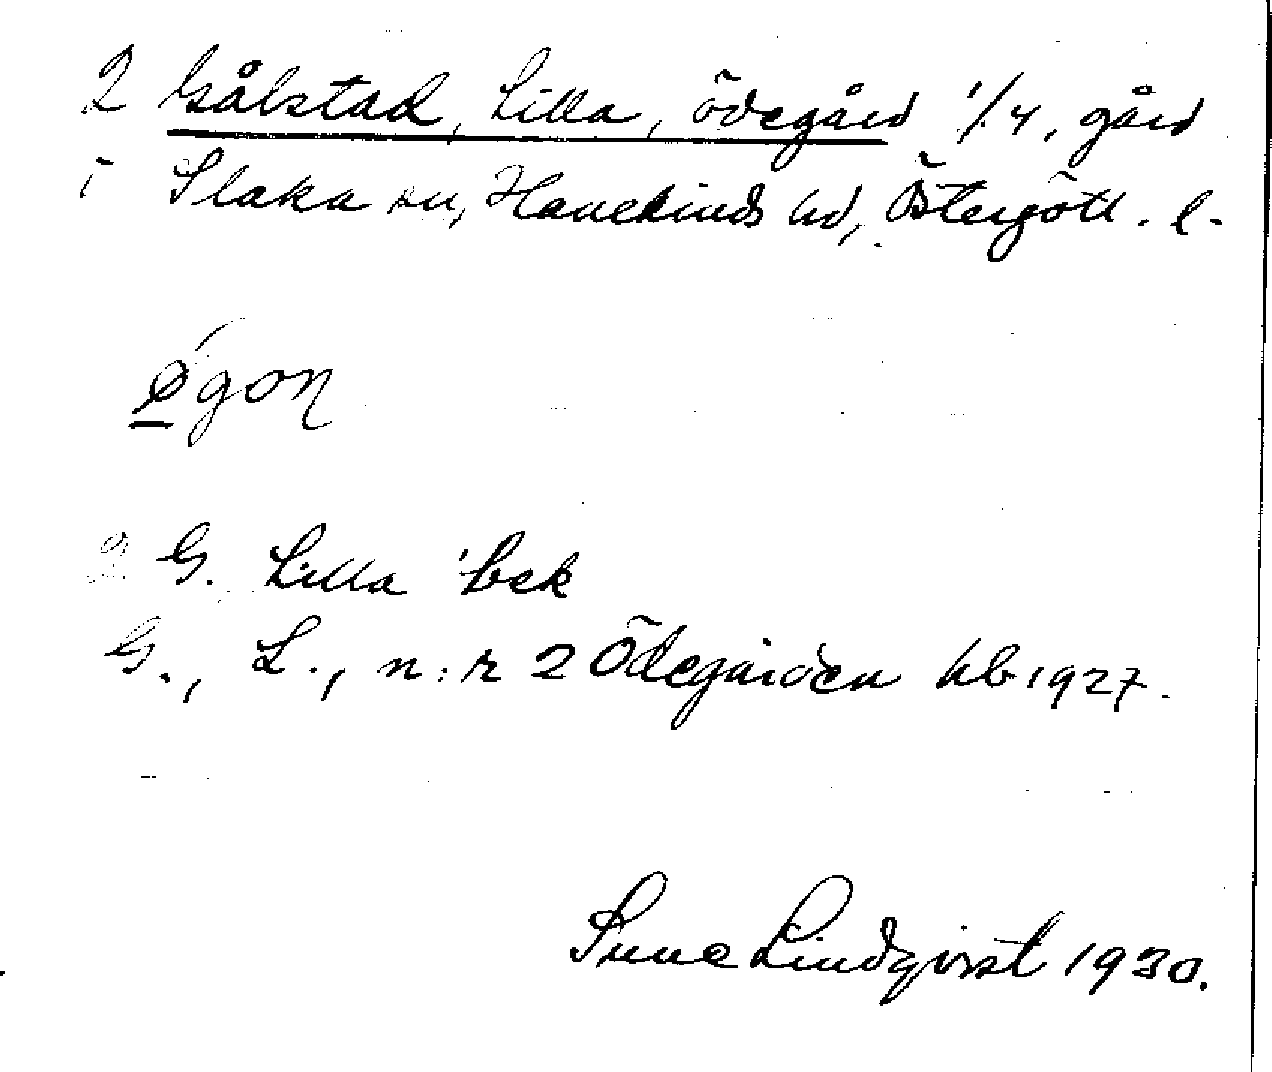 2 Gålstad, Lilla, ödegård 1/4, gård
i Slaka sn, Hanekinds hd, Östergötl. l.
ǿ̱gon
2 G. Lilla bek
G., L., n:r 2 Ödegården hb 1927.
Sune Lindqvist 1930.